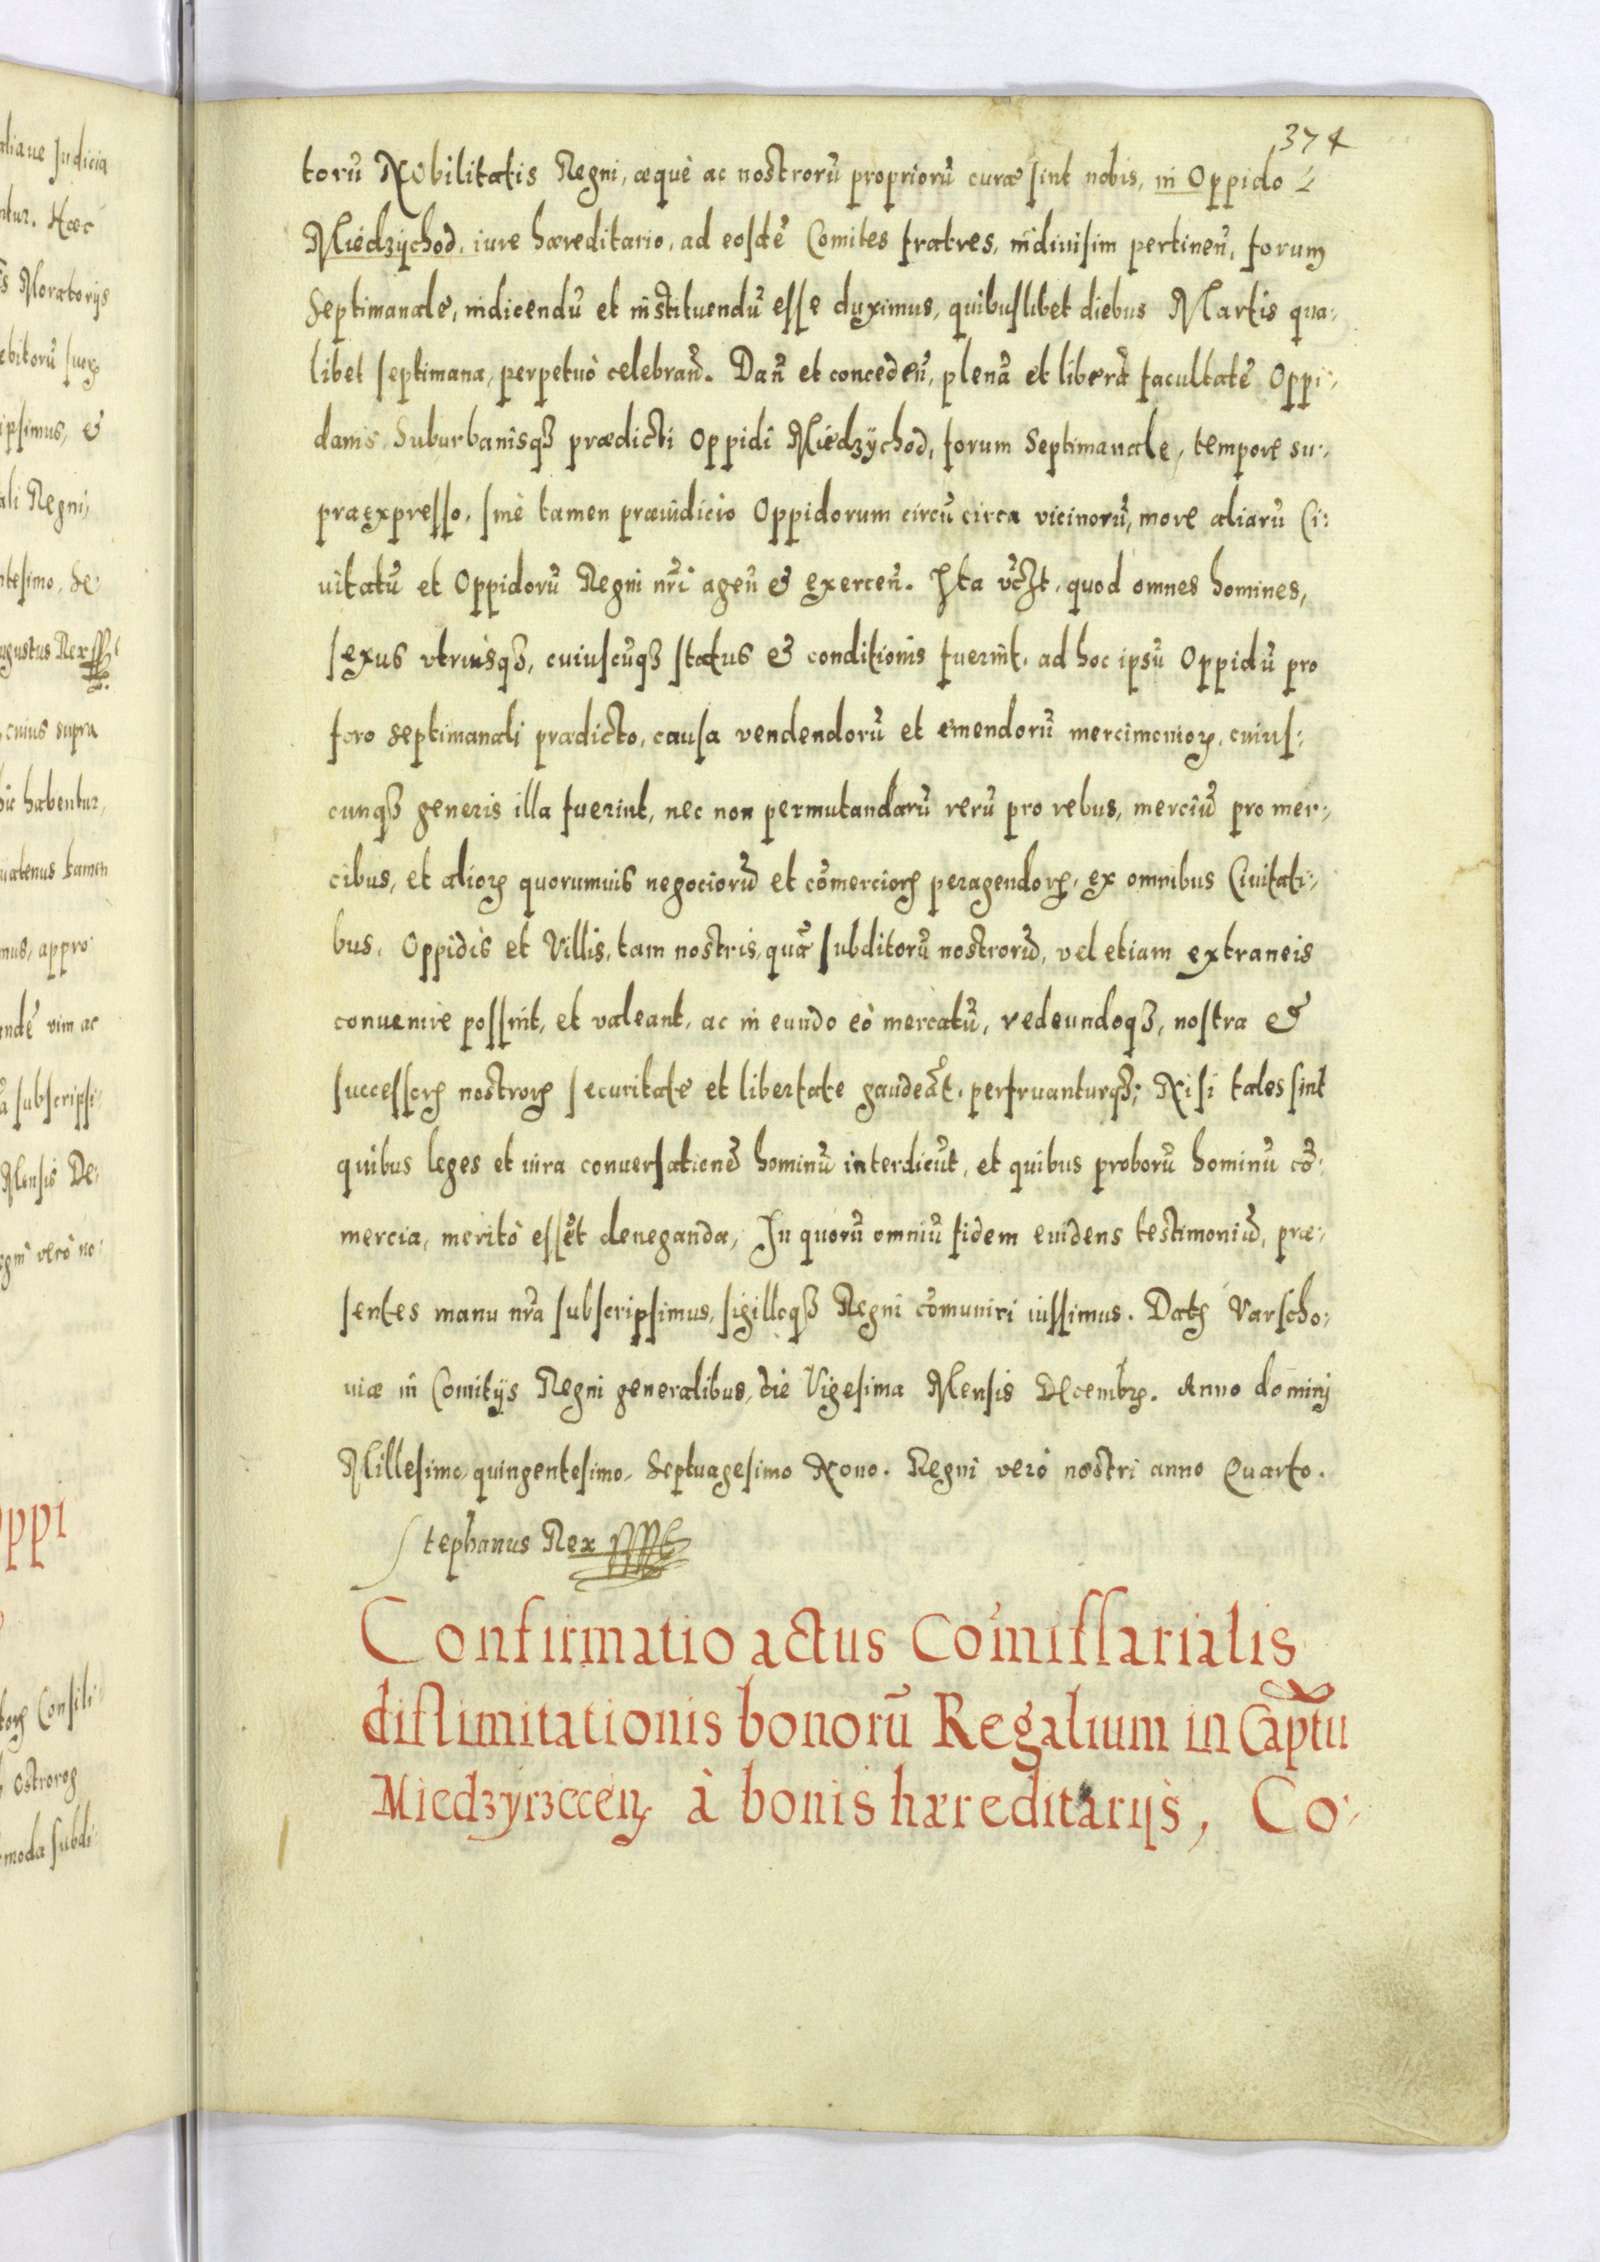 374
torũ Nobilitatis Regni, æquè ac nostrorũ propriorũ curæ sint nobis, in Oppido
Miedzÿchod, iure hæreditario, ad eosdẽ Comites fratres, indiuisim pertineñ, forum
Septimanale, indicendũ et instituendũ esse duximus, quibuslibet diebus Martis qua-
libet septimana, perpetuò celebrañ. Dañ et concedeñ, plenã et liberã facultatẽ Oppi-
danis Suburbanisqꝫ prædicti Oppidi Miedzÿchod, forum Septimanale, tempore su-
praexpresso, sine tamen præiudicio Oppidorum circũ circa vicinorũ, more aliarũ Ci-
uitatũ et Oppidorũ Regni nr̃i ageñ & exerceñ. Ita vt, quod omnes homines,
sexus vtriusqꝫ, cuiuscũqꝫ status & conditionis fuerint, ad hoc ipsũ Oppidũ pro
foro septimanali prædicto, causa vendendorũ et emendorũ mercimonioꝝ, cuius-
cunqꝫ generis illa fuerint, nec non permutandarũ rerũ pro rebus, merciũ pro mer-
cibus, et alioꝝ quorumuis negociorũ et cõmercioꝝ peragendoꝝ, ex omnibus Ciuitati-
bus, Oppidis et Villis, tam nostris, quã subditorũ nostrorũ, vel etiam extraneis
conuenire possint, et valeant, ac in eundo eò mercatũ, redeundoqꝫ, nostra &
successoꝝ nostroꝝ securitate et libertate gaudeãt, perfruanturqꝫ; Nisi tales sint
quibus leges et iura conuersationẽ hominũ interdicũt, et quibus proborũ hominũ cõ-
mercia, meritò essẽt deneganda, In quorũ omniũ fidem euidens testimoniũ, præ-
sentes manu nr̃a subscripsimus, sigilloqꝫ Regni cõmuniri iussimus. Datꝫ Varscho-
uiæ in Comitijs Regni generalibus, die Vigesima Mensis Decembꝝ. Anno dominj
Millesimo, quingentesimo, Septuagesimo Nono. Regni verò nostri anno Quarto.
Stephanus Rex
Confirmatio actus Com̃issarialis
dislimitationis bonorũ Regalium in Captũ
Miedzyrzeceñ à bonis hæreditarijs, Co-